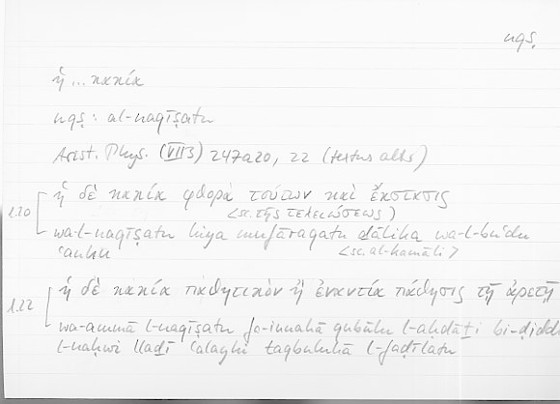 nqṣ
ἡ ... κακία
nqṣ : al-naqīṣatu
Arist. Phys. (VII 3) 247a20, 22 (textus alter)
l.20 ἡ δὲ κακία φθορὰ τούτων καὶ ἔκστασις
<sc. τῆς τελειώσεως>
wa-l-naqīṣatu hiya mufāraqatu ḏālika wa-l-buʿdu
ʿanhu <sc. al-kamāli>
l.22 ἡ δὲ κακία παθητικὸν ἢ ἐναντία πάθησις τῇ ἀρετῇ
wa-ammā l-naqīṣatu fa-innahā qubūlu l-aḥdāṯi bi-ḍiddi
l-naḥwi llaḏī ʿalayhi taqbaluhā l-faḍīlatu